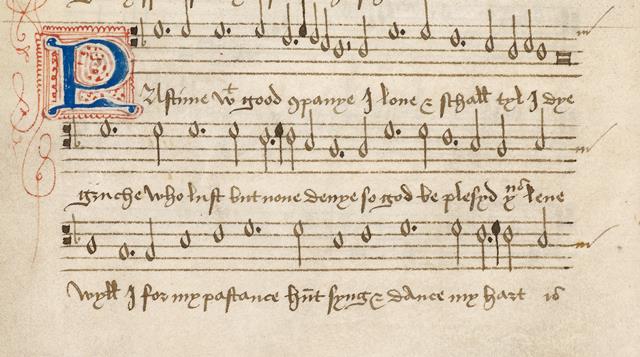 PAstime wt good ꝯpanye I loue & schall tyl I dye
gruche who lust but none denye so god be plesyd þus leue
wyll I for my pastance hũt syng & dãce my hart is